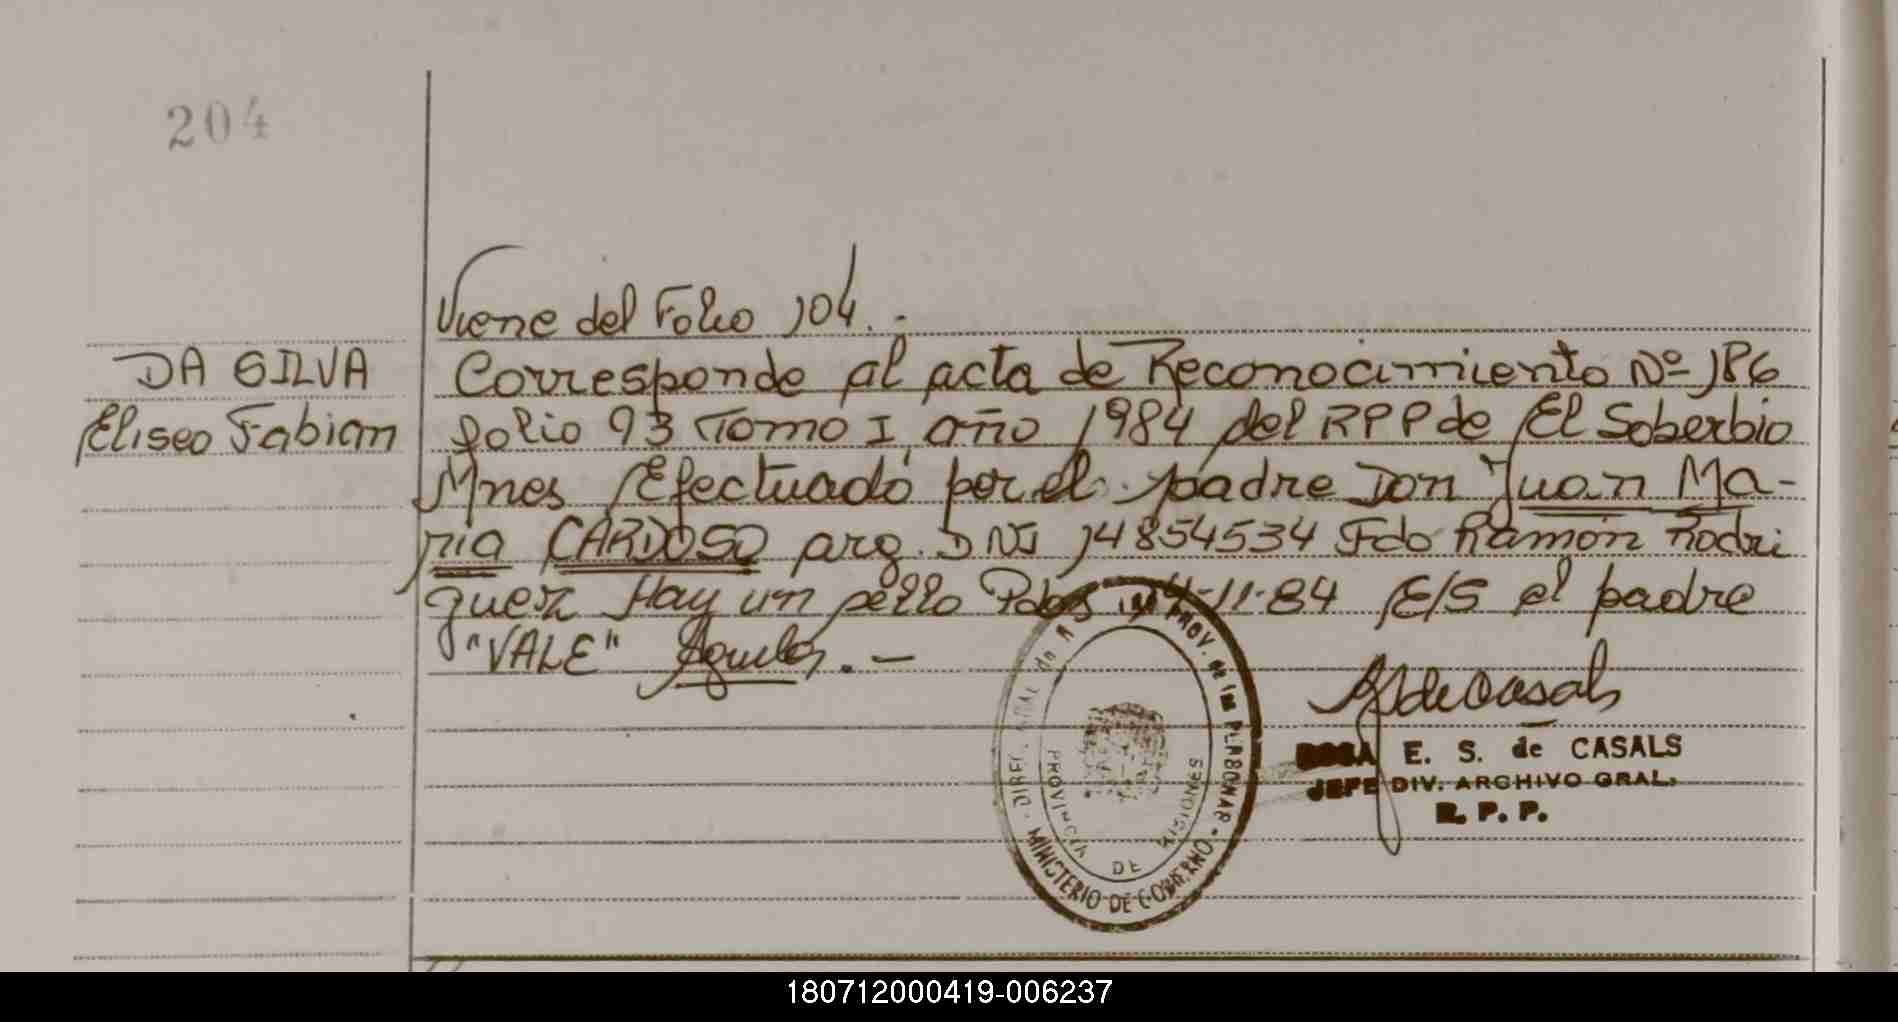 204
Viene del Folio 104.-
DA SILVA
Eliseo Fabian
Corresponde al acta de Reconocimiento Nº 186
folio 93 Tomo I, año 1984 del RPP de El Soberbio
Mnes Efectuado por el padre Don Juan Ma-
ria CARDOSO arg. DNI 14854534 Fdo Ramón Rodri
guez Hay un sello Pdas 11-84 E/S el padre
"VALE"
ROSA E. S. de CASALS
JEFE DIV. ARCHIVO GRAL.
R. P. P.
PROV. de las PERSONAS
MINISTERIO DE GOBIERNO
PROVINCIA DE MISIONES
180712000419-006237